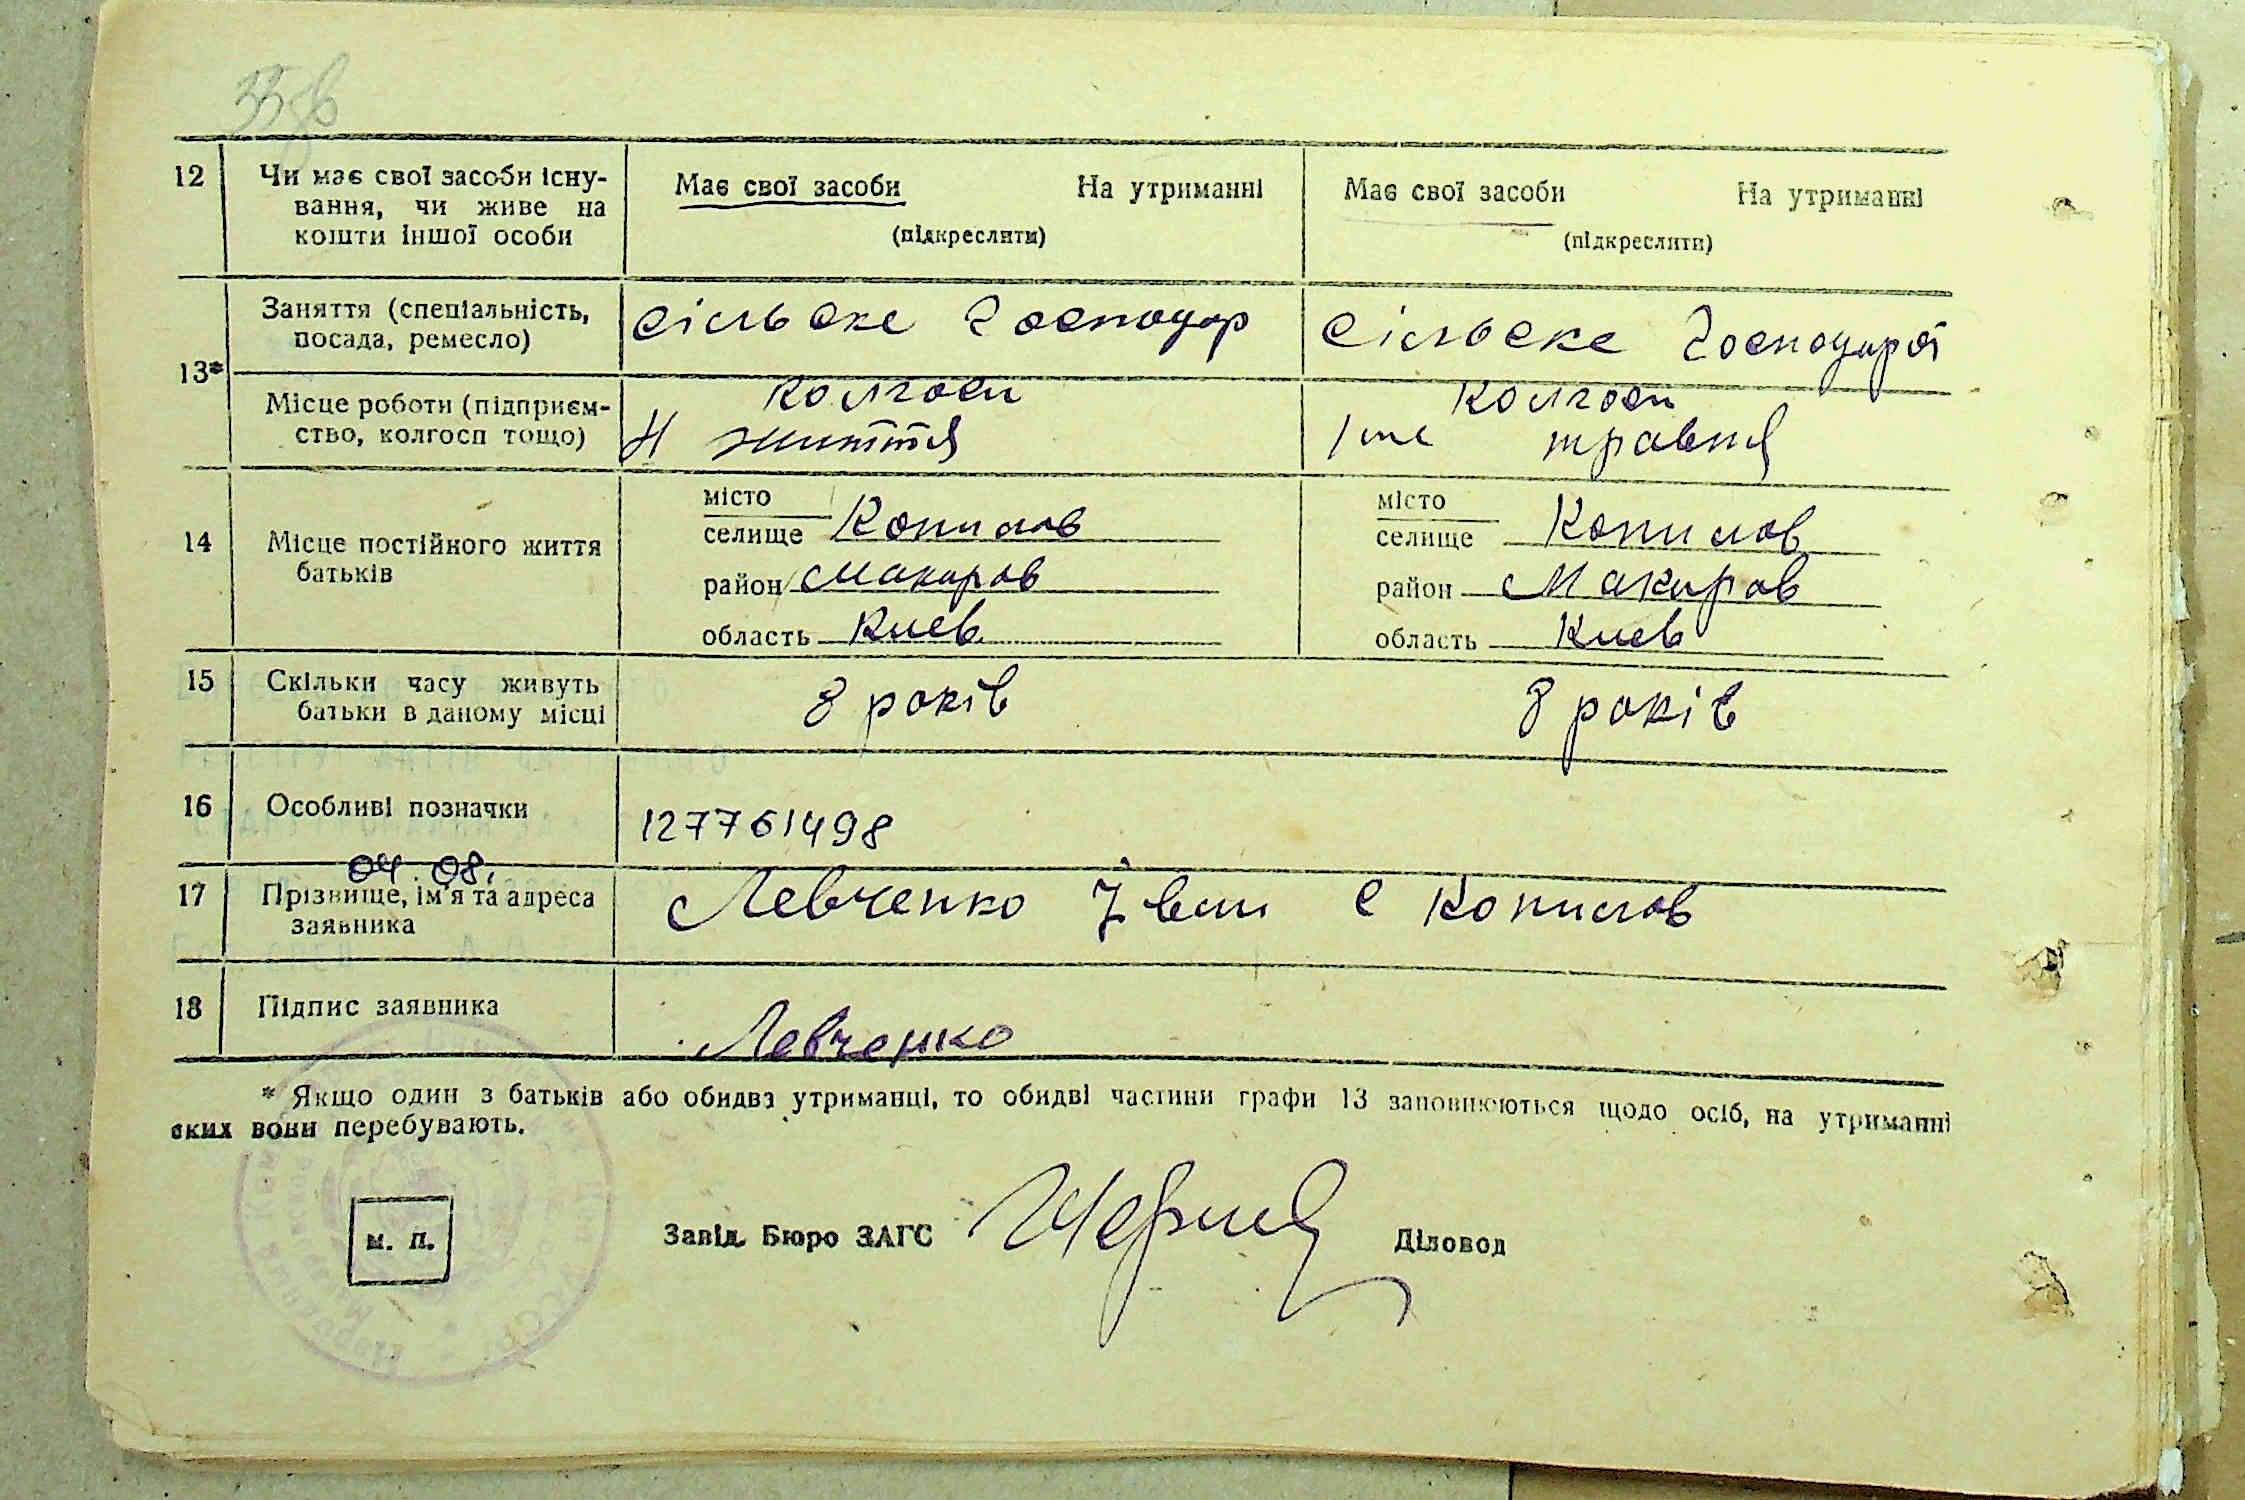 12 Чи має свої засоби існу- Має свої засоби На утриманні Має свої засоби На утриманні
вання, чи живе на
кошти іншої особи (підкреслити) (підкреслити)
13* Заняття (спеціальність, сільске господар сільске господарст
посада, ремесло)
Місце роботи (підприєм- колгосп колгосп
ство, колгосп тощо) Н життя 1 ше травня
14 Місце постійного життя місто місто
батьків селище Копилов селище Копилов
район Макаров район Макаров
область Киев область Киев
15 Скільки часу живуть 8 років 8 років
батьки в даному місці
16 Особливі позначки 127761498
04. 08.
17 Прізвище, ім'я та адреса Левченко Іван с Копилов
заявника
18 Підпис заявника Левченко
* Якщо один з батьків або обидва утриманці, то обидві частини графи 13 заповнюються щодо осіб, на утриманні
яких вони перебувають.
м. п. Завід. Бюро ЗАГС Діловод